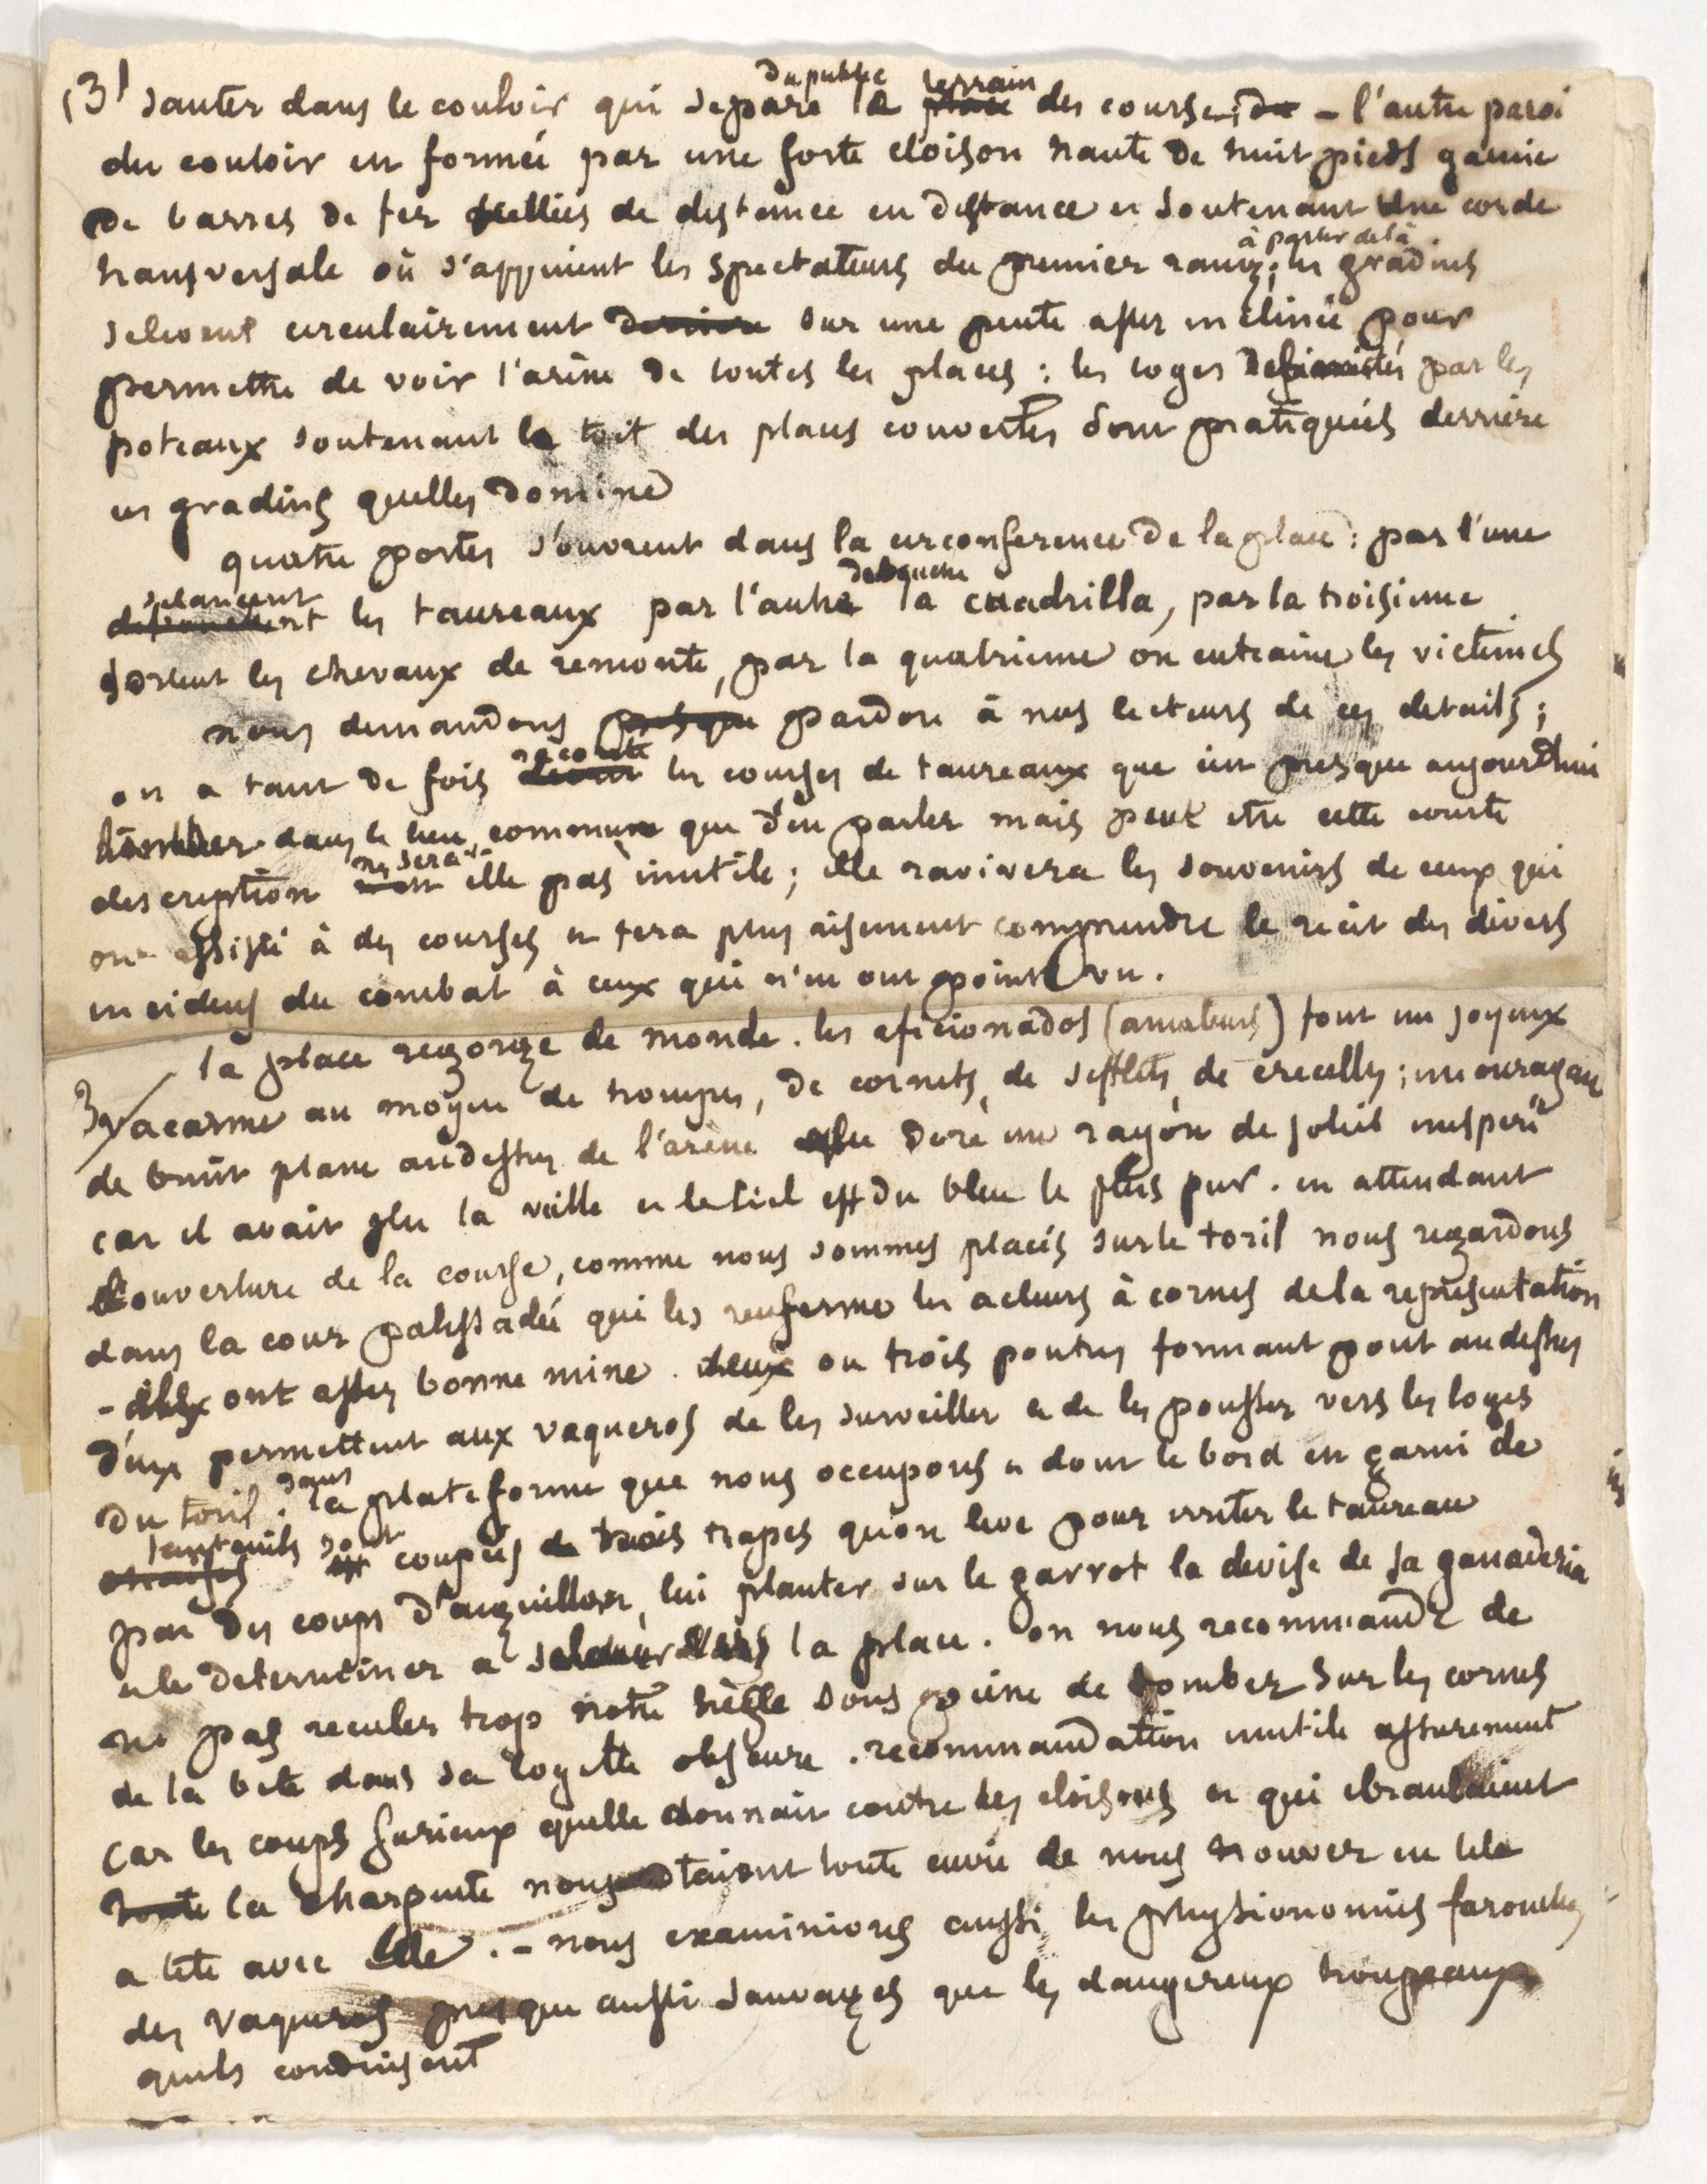 (3) sauter dans le couloir qui separe du public le terrain des courses - l'autre paroi
du couloir est formée par une forte cloison haute de huit pieds garnie
de barres de fer scellées de distance en distance et soutenant une corde
transversale où s'appuient les spectateurs du premier rang; à partir de là les gradins
s'elevent circulairement derriere sur une pente assez inclinée pour
permettre de voir l'arène de toutes les places : les loges delimitées par les
poteaux soutenant le toit des places couvertes sont pratiquées derrière
ces gradins quelles domine
quatre portes s'ouvrent dans la circonference de la place : par l'une
s'elancent les taureaux par l'autre debouche la cuadrilla, par la troisieme
sortent les chevaux de remonte, par la quatrieme on entraine les victimes
nous demandons presque pardon à nos lecteurs de ces details;
on a tant de fois raconté les courses de taureaux que c'est presque aujourdhui
tomber dans le lieu commun que d'en parler mais peut etre cette courte
description ne sera-t-elle pas inutile; elle ravivera les souvenirs de ceux qui
ont assisté à des courses et fera plus aisement comprendre le recit des divers
incidens du combat à ceux qui n'en ont point vu.
la place regorge de monde. les aficionados (amateurs) font un joyeux
3 vacarme au moyen de trompes, de cornets, de sifflets, de crecelles; un ouragan
de bruit plane audessus de l'arène que dore un rayon de soleil inesperé
car il avait plu la veille et le ciel est du bleu le plus pur. en attendant
l'ouverture de la course, comme nous sommes placés sur le toril nous regardons
dans la cour palissadée qui les renferme les acteurs à cornes de la representation
- ont assez bonne mine. deux ou trois poutres formant pont audessus
d'eux permettent aux vaqueros de les surveiller et de les pousser vers les loges
du toril. dans la plateforme que nous occupons et dont le bord est garni de
fauteuils sont coupées trois trapes qu'on leve pour irriter le taureau
par des coups d'aiguillon, lui planter sur le garrot la devise de sa ganaderia
et le determiner a s'elancer dans la place. on nous recommande de
ne pas reculer trop notre siège sous peine de tomber sur les cornes
de la bete dans sa logette obscure. recommandation inutile assurement
car les coups furieux quelle donnait contre les cloisons et qui ebranlaient
toute la charpente nous otaient toute envie de nous trouver en tete
a tete avec elle. - nous examinions aussi les physionomies farouches
des vaqueros presque aussi sauvages que les dangereux troupeaux
quils conduisent